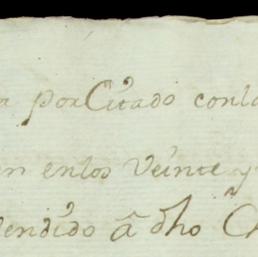 por Citado conlo
en enlos Veinte y
vendido â dho